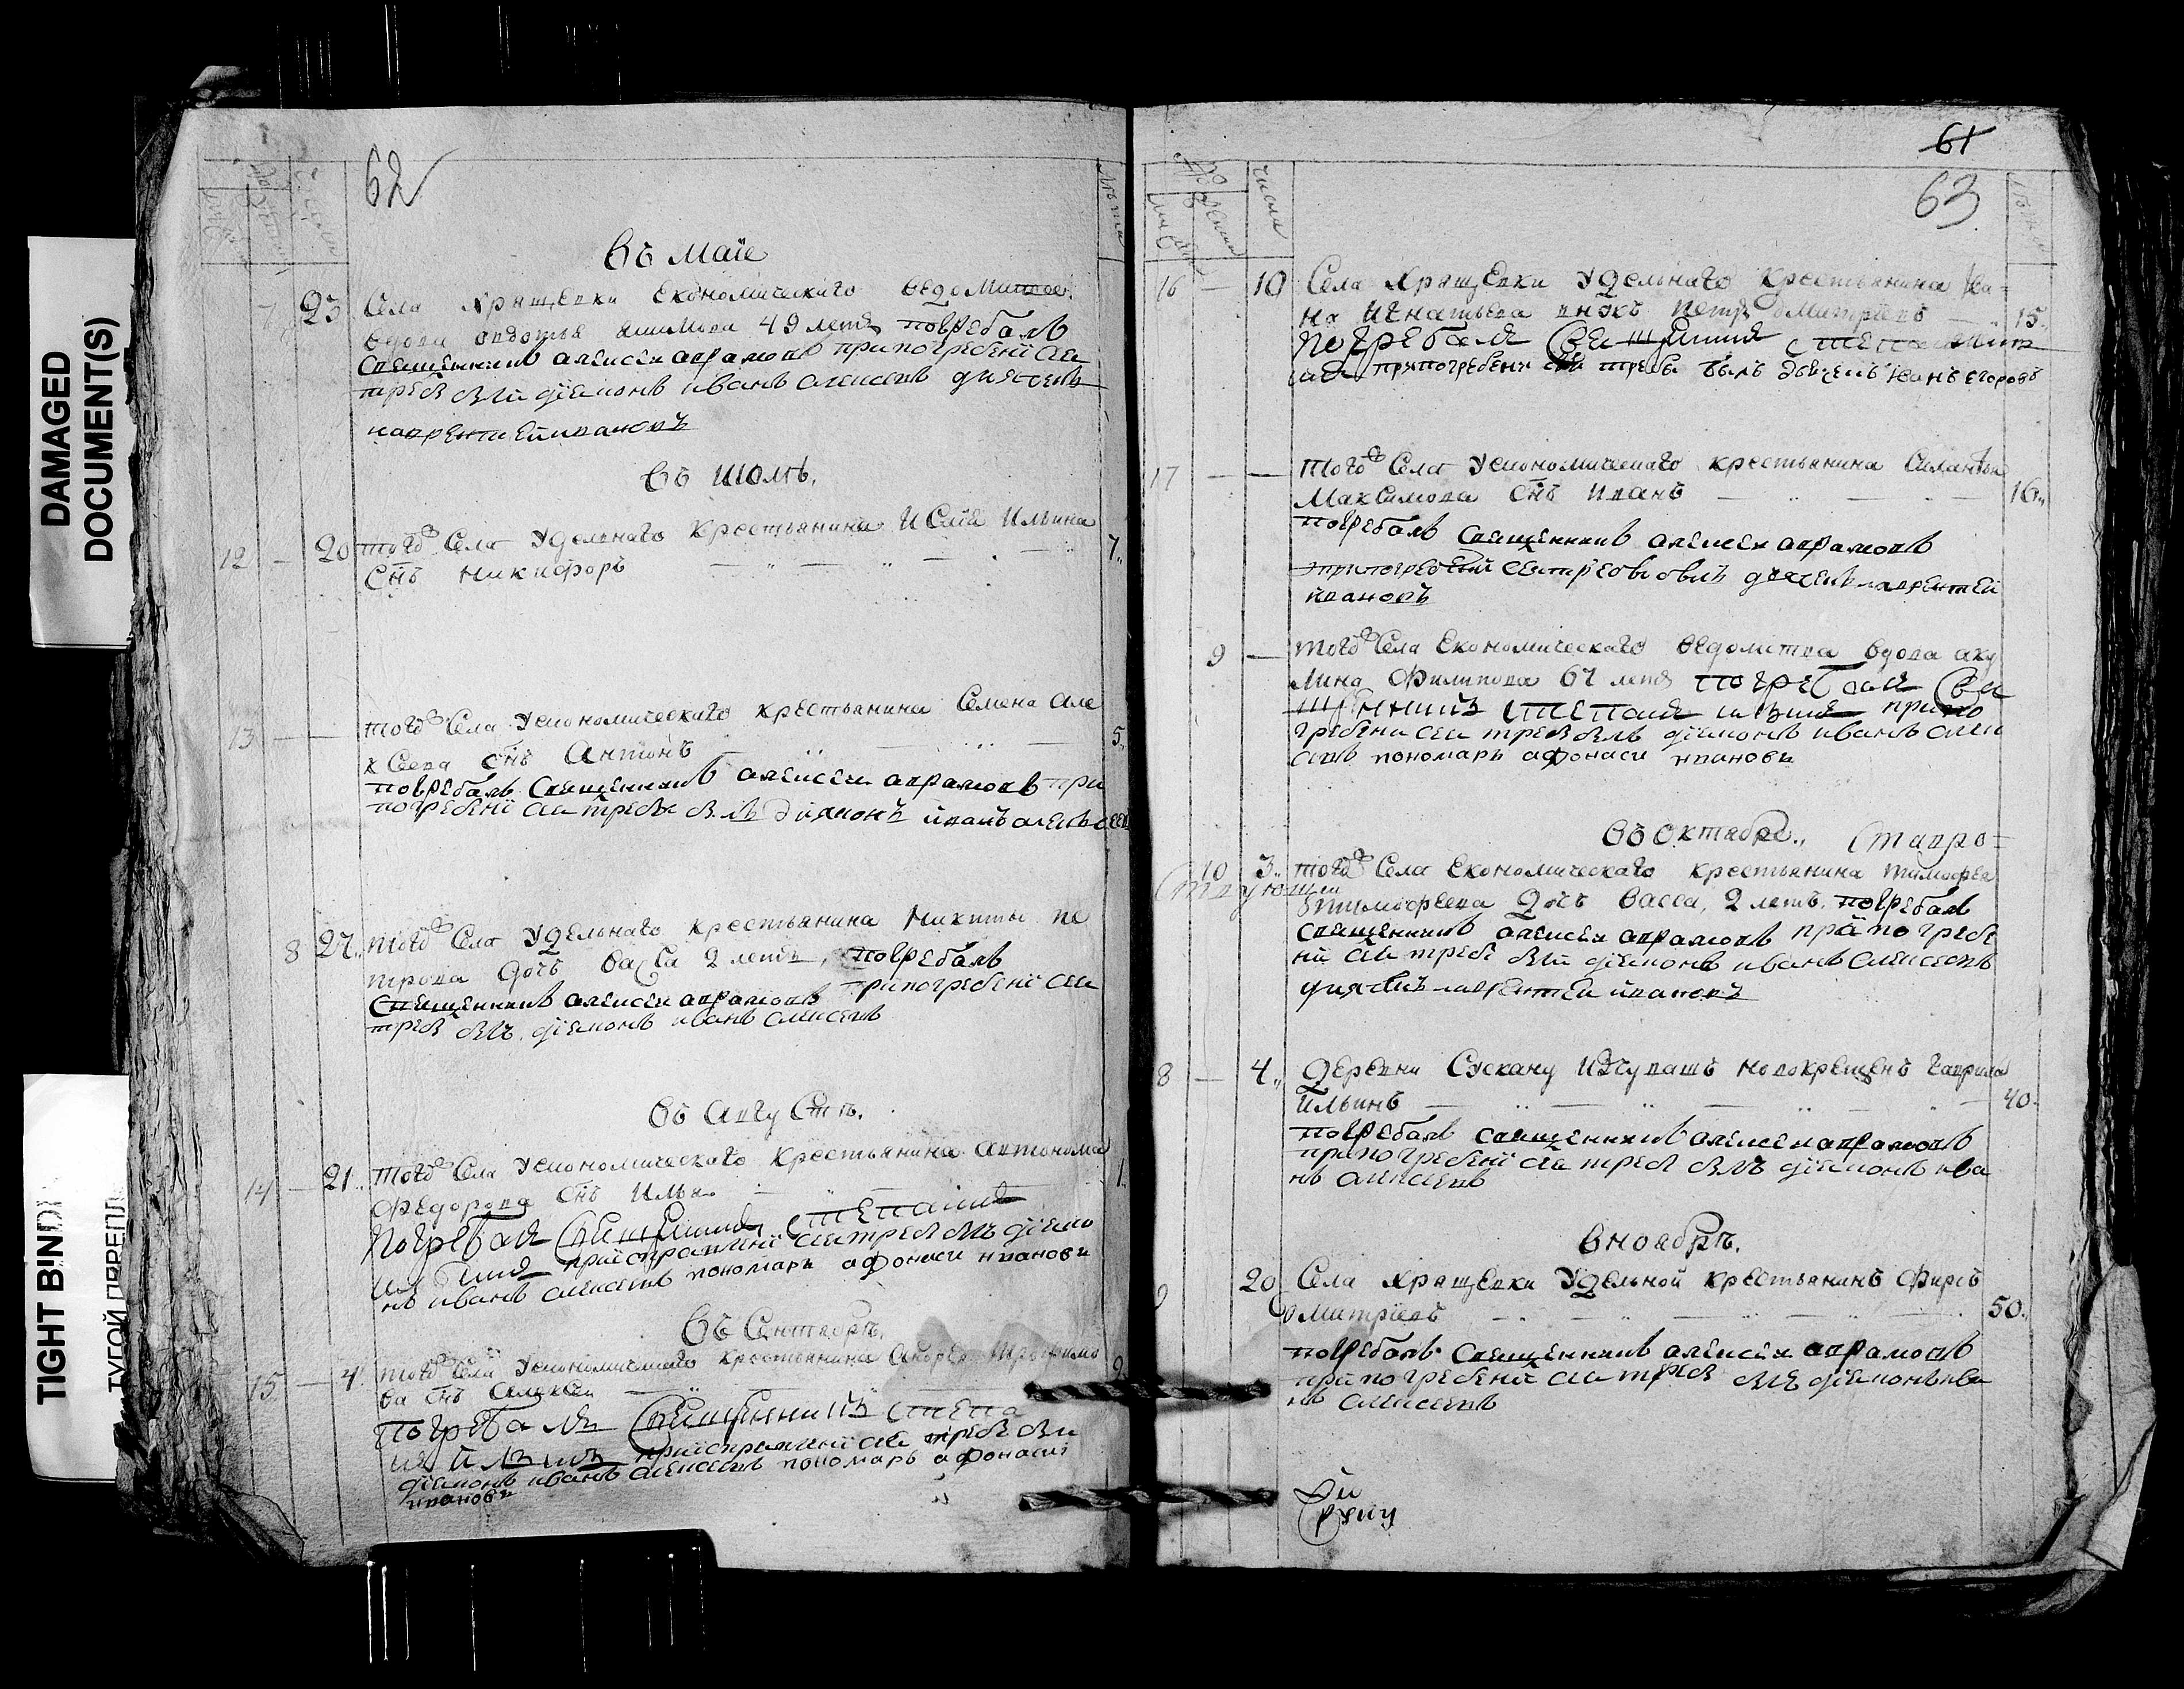 DAMAGED
DOCUMENT(S)
TIGHT BINDI
ТУГОЙ ПЕРЕПЛ
62
Въ Маїе
7 23 Села Хрящевки Економическаго ведомства
вдова авдотья 49 летъ погребалъ
священникъ алексей аврамовъ при погребенїи сей
требе былъ дїаконъ иванъ алексеевъ дьячекъ
лаврентей ивановъ
Въ Июлѣ.
12 — 20 того Села Удельнаго Крестьянина Исаїя Ильина
снъ Никифоръ 7
13 — — того Села Економическаго крестьянина Семена Але
ксеева снъ Антонъ 5
погребалъ священникъ алексей аврамовъ при
погребенїи сей требе былъ дияконъ иванъ алексеевъ
8 27 того Села Удельнаго крестьянина Никиты пе
трова дочь Васса 2 летъ, погребалъ
священникъ алексей аврамовъ при погребенїи сей
требе былъ дїаконъ иванъ алексеевъ
Въ Августѣ.
14 — 21 того Села Економическаго Крестьянина Автонома
Федорова снъ Илья 1
погребалъ священникъ стефанъ
при исправленїи сей требе былъ дїако
нъ иванъ алексеевъ пономарь афонаси ивановъ
Въ Сентябрѣ.
15 — 4 того Села Економическаго крестьянина Андрея Трофимо
ва снъ Алексей 9
погребалъ священникъ стефа
нъ при исправленїи сей требе былъ
дїаконъ иванъ алексеевъ пономарь афонасий
ивановъ
61
63
числа
16 — 10 Села Хрящевки Удельнаго Крестьянина Ива=
на Игнатьева внукъ Петръ Дмитрїевъ 15
погребалъ священникъ стефанъ
при погребени сей требы былъ дьячекъ Иванъ Егоровъ
17 — — того Села Економическаго крестьянина Силантья
Максимова снъ Иванъ 16
погребалъ священникъ алексей аврамовъ
при погребенїи сей требе былъ дьячекъ лаврентей
ивановъ
9 — того Села Економическаго ведомства вдова аку
лина Филипова 67 летъ погребалъ свя
щенникъ стефанъ при по
гребени сей требе былъ дїаконъ иванъ алек
сеевъ пономарь афонаси ивановъ
Въ Октябре., Ставро=
10 3 того Села Економическаго крестьянина тимофея
тимофеева дочь Васса, 2 летъ. погребалъ
священникъ алексей аврамовъ при погребе
нїи сей требе былъ дїаконъ иванъ алексеевъ
дьячекъ лаврентей ивановъ
8 — 4 деревни Сускану Изчувашъ новокрещенъ Гаврила
Ильинъ 40
погребалъ священникъ алексей аврамовъ
при погребенїи сей требе былъ дїаконъ ива
нъ алексеевъ
В ноябрѣ.
9 20 Села Хрящевки Удельной крестьянинъ Фирсъ
Дмитрїевъ 50
погребалъ священникъ алексей аврамовъ
при погребенїи сей требе былъ дїаконъ ива
нъ алексеевъ